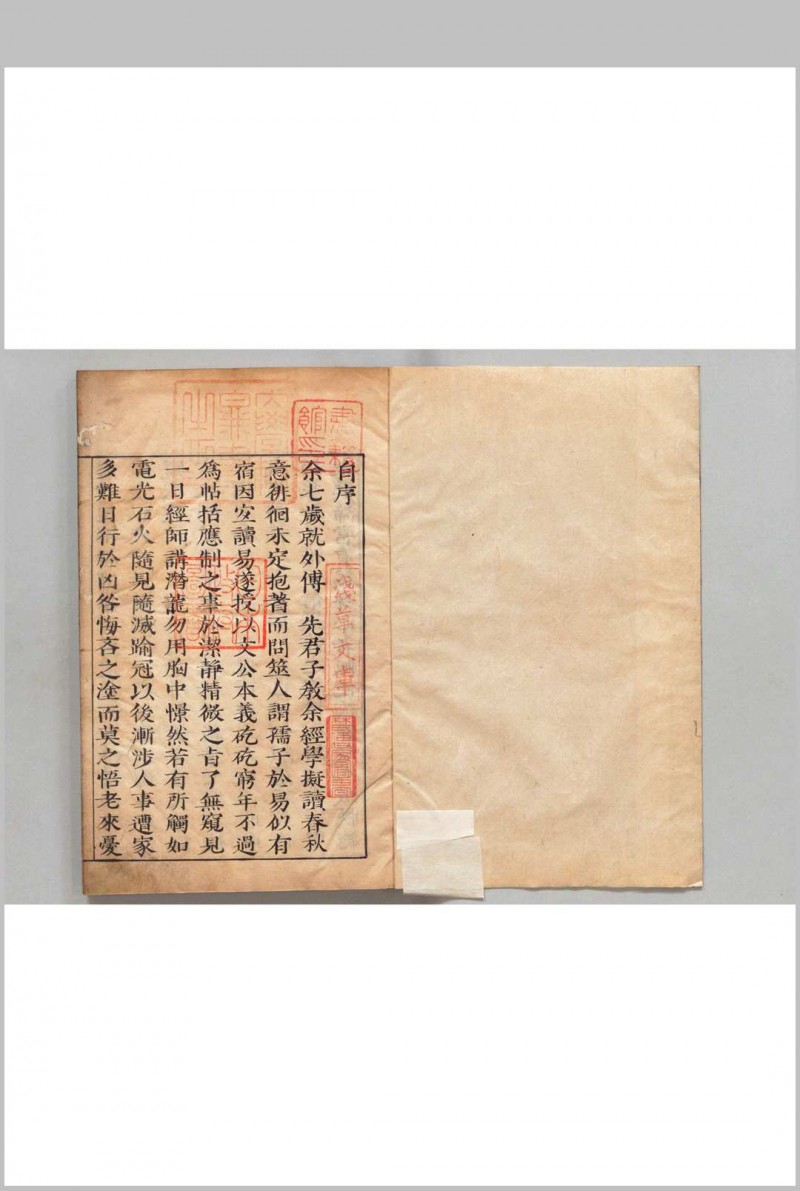 自序
余七歲就外傅　先君子教余經學擬讀春秋
意徘徊未定抱蓍而問筮人謂孺子於易似有
宿因宜讀易遂授以文公本義矻矻窮年不過
爲帖括應制之事於潔靜精微之旨了無窺見
一日經師講潛龍勿用胸中憬然若有所觸如
電光石火隨見隨滅踰冠以後漸涉人事遭家
多難日行於凶咎悔吝之塗而莫之悟老來憂